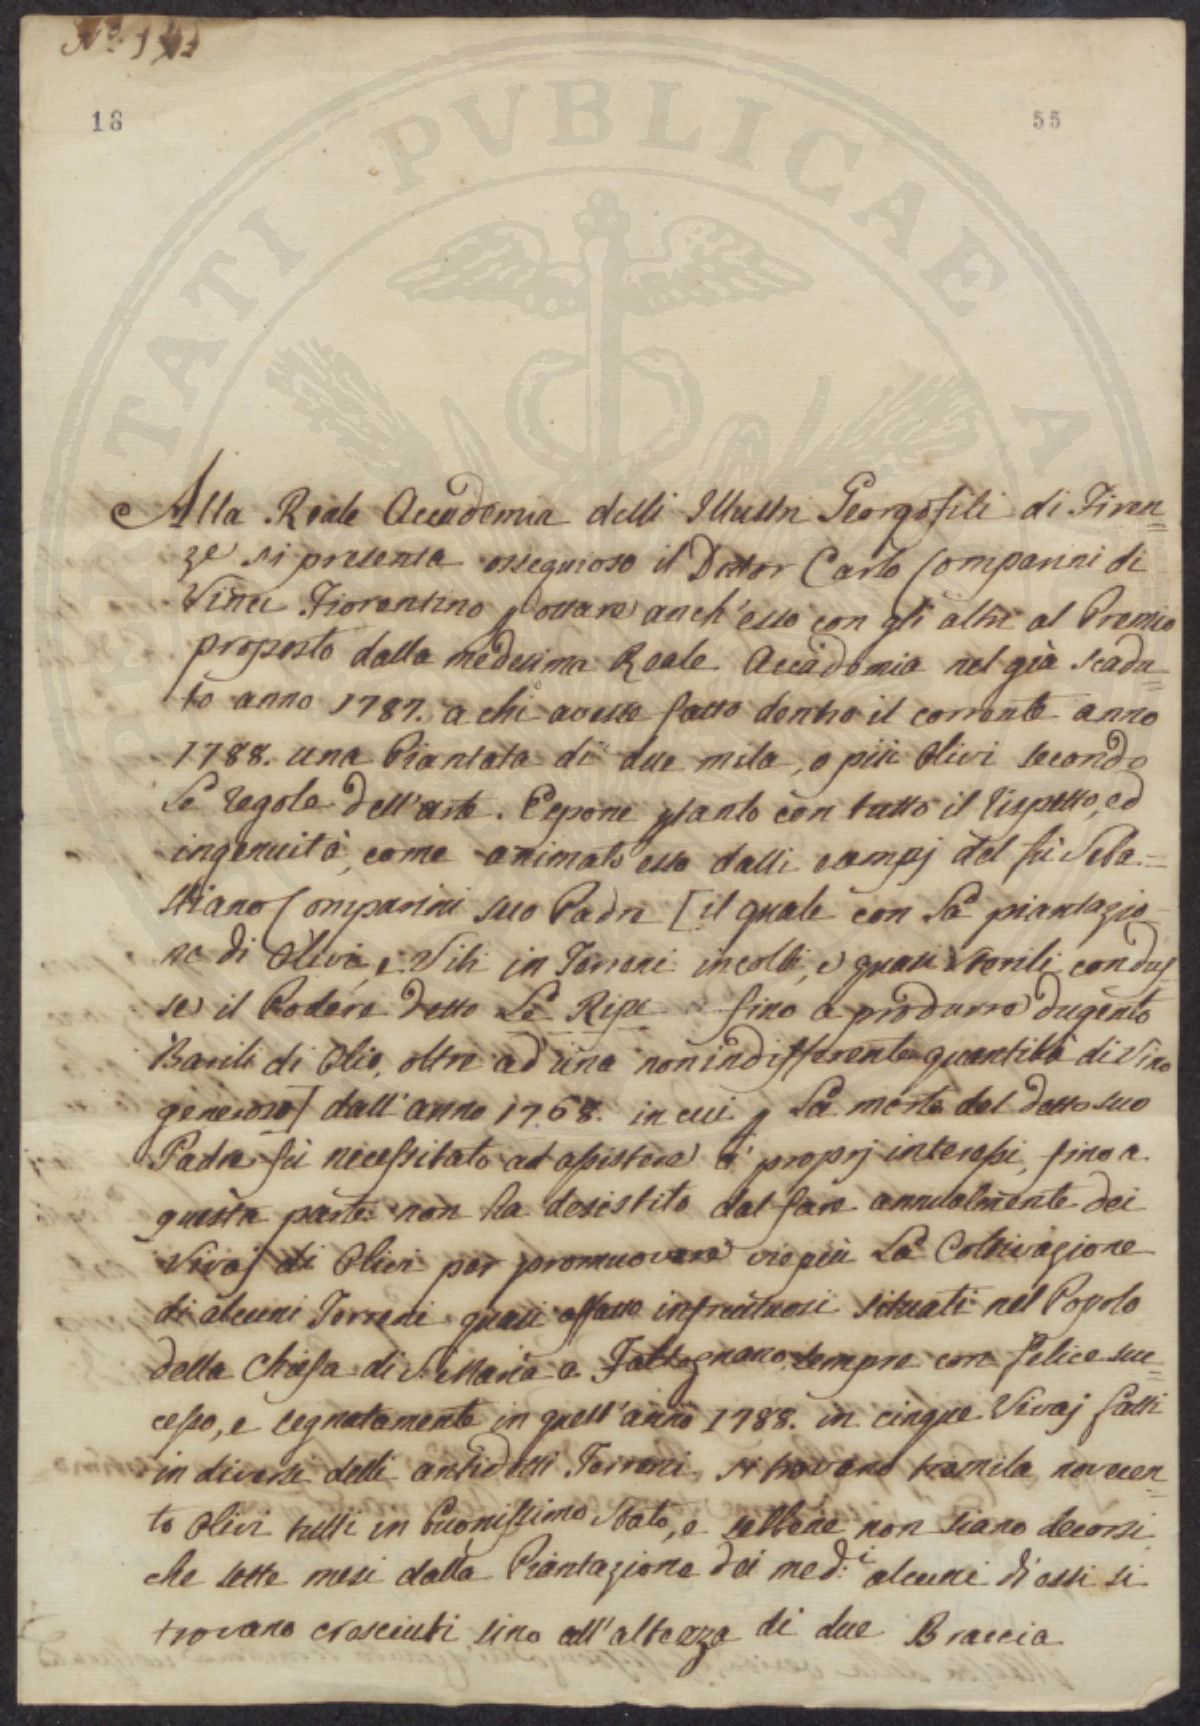 N.° 
18
55
PROSPERITATI PUBLICAE A
Alla Reale Accademia delli Illustri Georgofili di Firen=
ze si presenta ossequioso il Dottor Carlo Comparini di
Vinci Fiorentino p ottare anch'esso con gli altri al Premio
proposto dalla medesima Reale Accademia nel già scadu=
to anno 1787. a chi avesse fatto dentro il corrente anno
1788. una Piantata di due mila, o più Olivi secondo
Le regole dell'arte. Espone ptanto con tutto il rispetto, ed
ingenuità, come animato esso dalli esempj del fù Seba=
stiano Comparini suo Padre [il quale con La piantazio=
ne di Olivi, e Viti in Terreni incolti, e quasi sterili condus
se il Podere detto Le Ripe fino a produrre dugento
Barili di Olio, oltre ad una non indifferente quantità di Vino
generoso] dall'anno 1768. in cui p La morte del detto suo
Padre fù necessitato ad assistere a' proprj interessi, fino a
questa parte non ha desistito dal fare annualmente dei
Vivaj di Olivi per promuovere viepiù La Coltivazione
di alcuni Terreni quasi affatto infruttuosi situati nel Popolo
della Chiesa di S. Maria a Faltognano, sempre con felice suc=
cesso, e segnatamente in quest'anno 1788. in cinque Vivaj fatti
in diversi delli antidetti Terreni, si trovano tremila novecen=
to Olivi tutti in buonissimo stato, e sebbene non siano decorsi
che sette mesi dalla Piantazione dei med.i alcuni di essi si
trovano cresciuti sino all'altezza di due Braccia